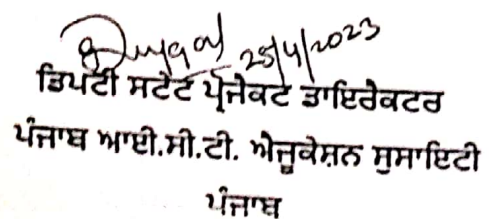 25/4/2023
ਡਿਪਟੀ ਸਟੇਟ ਪ੍ਰੋਜੈਕਟ ਡਾਇਰੈਕਟਰ
ਪੰਜਾਬ ਆਈ.ਸੀ.ਟੀ. ਐਜੂਕੇਸ਼ਨ ਸੁਸਾਇਟੀ
ਪੰਜਾਬ